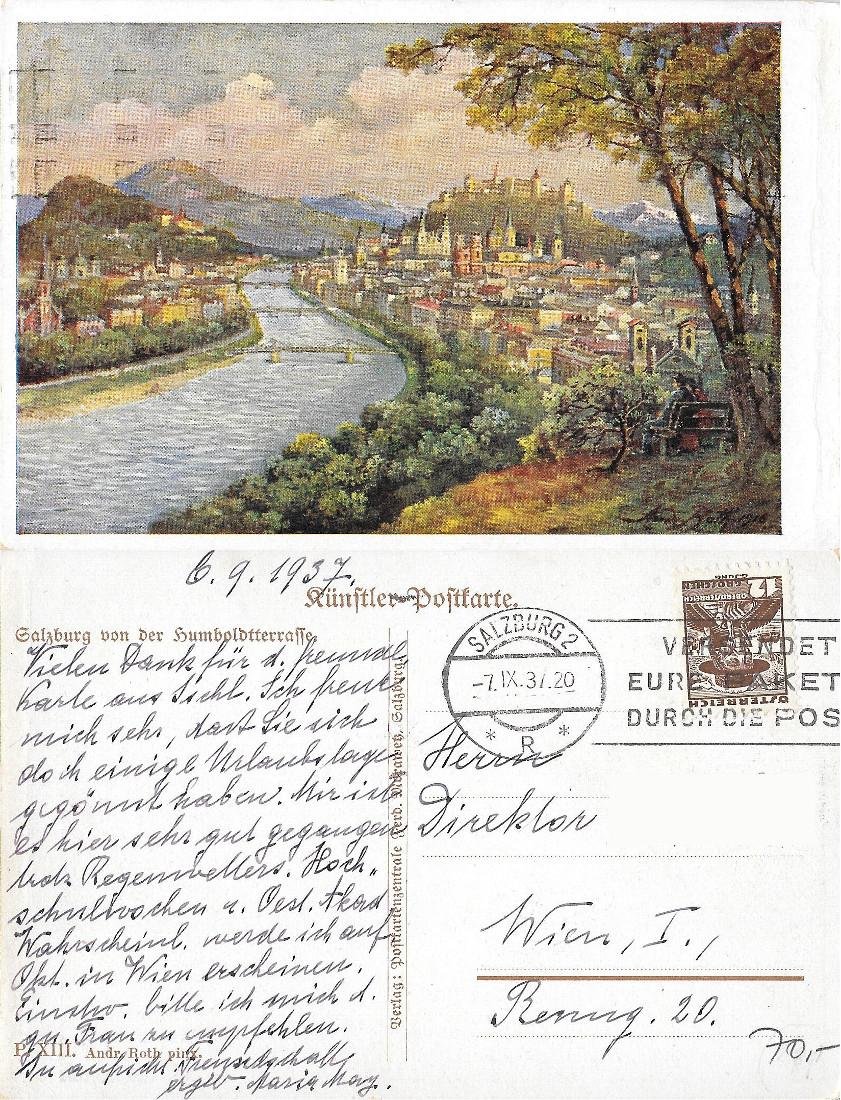 6.9.1937.
Künstler-Postkarte.
Salzburg von der Humboldtterrasse.
Vielen Dank für d. freundl.
Karte aus Ischl. Ich freue
mich sehr, dass Sie sich
doch einige Urlaubstage
gegönnt haben. Mir ist
es hier sehr gut gegangen
trotz Regenwetters. Hoch-
schulwochen u. Oest. Akad
Wahrscheinl. werde ich auf
Okt. in Wien erscheinen.
Einstw. bitte ich mich d.
gn. Frau zu empfehlen.
In aufricht. Freundschaft
ergeb. Maria May.
P. XIII. Andr. Roth pinx.
Verlag: Postkartenzentrale Ferd. Salzburg.
SALZBURG 2
-7.IX.37.20
* R *
VERSENDET
EURE PAKETE
DURCH DIE POS
17
GROSCHEN
OBERÖSTERREICH
ÖSTERREICH
Herrn
Direktor
Wien, I.,
Renng. 20.
70,-